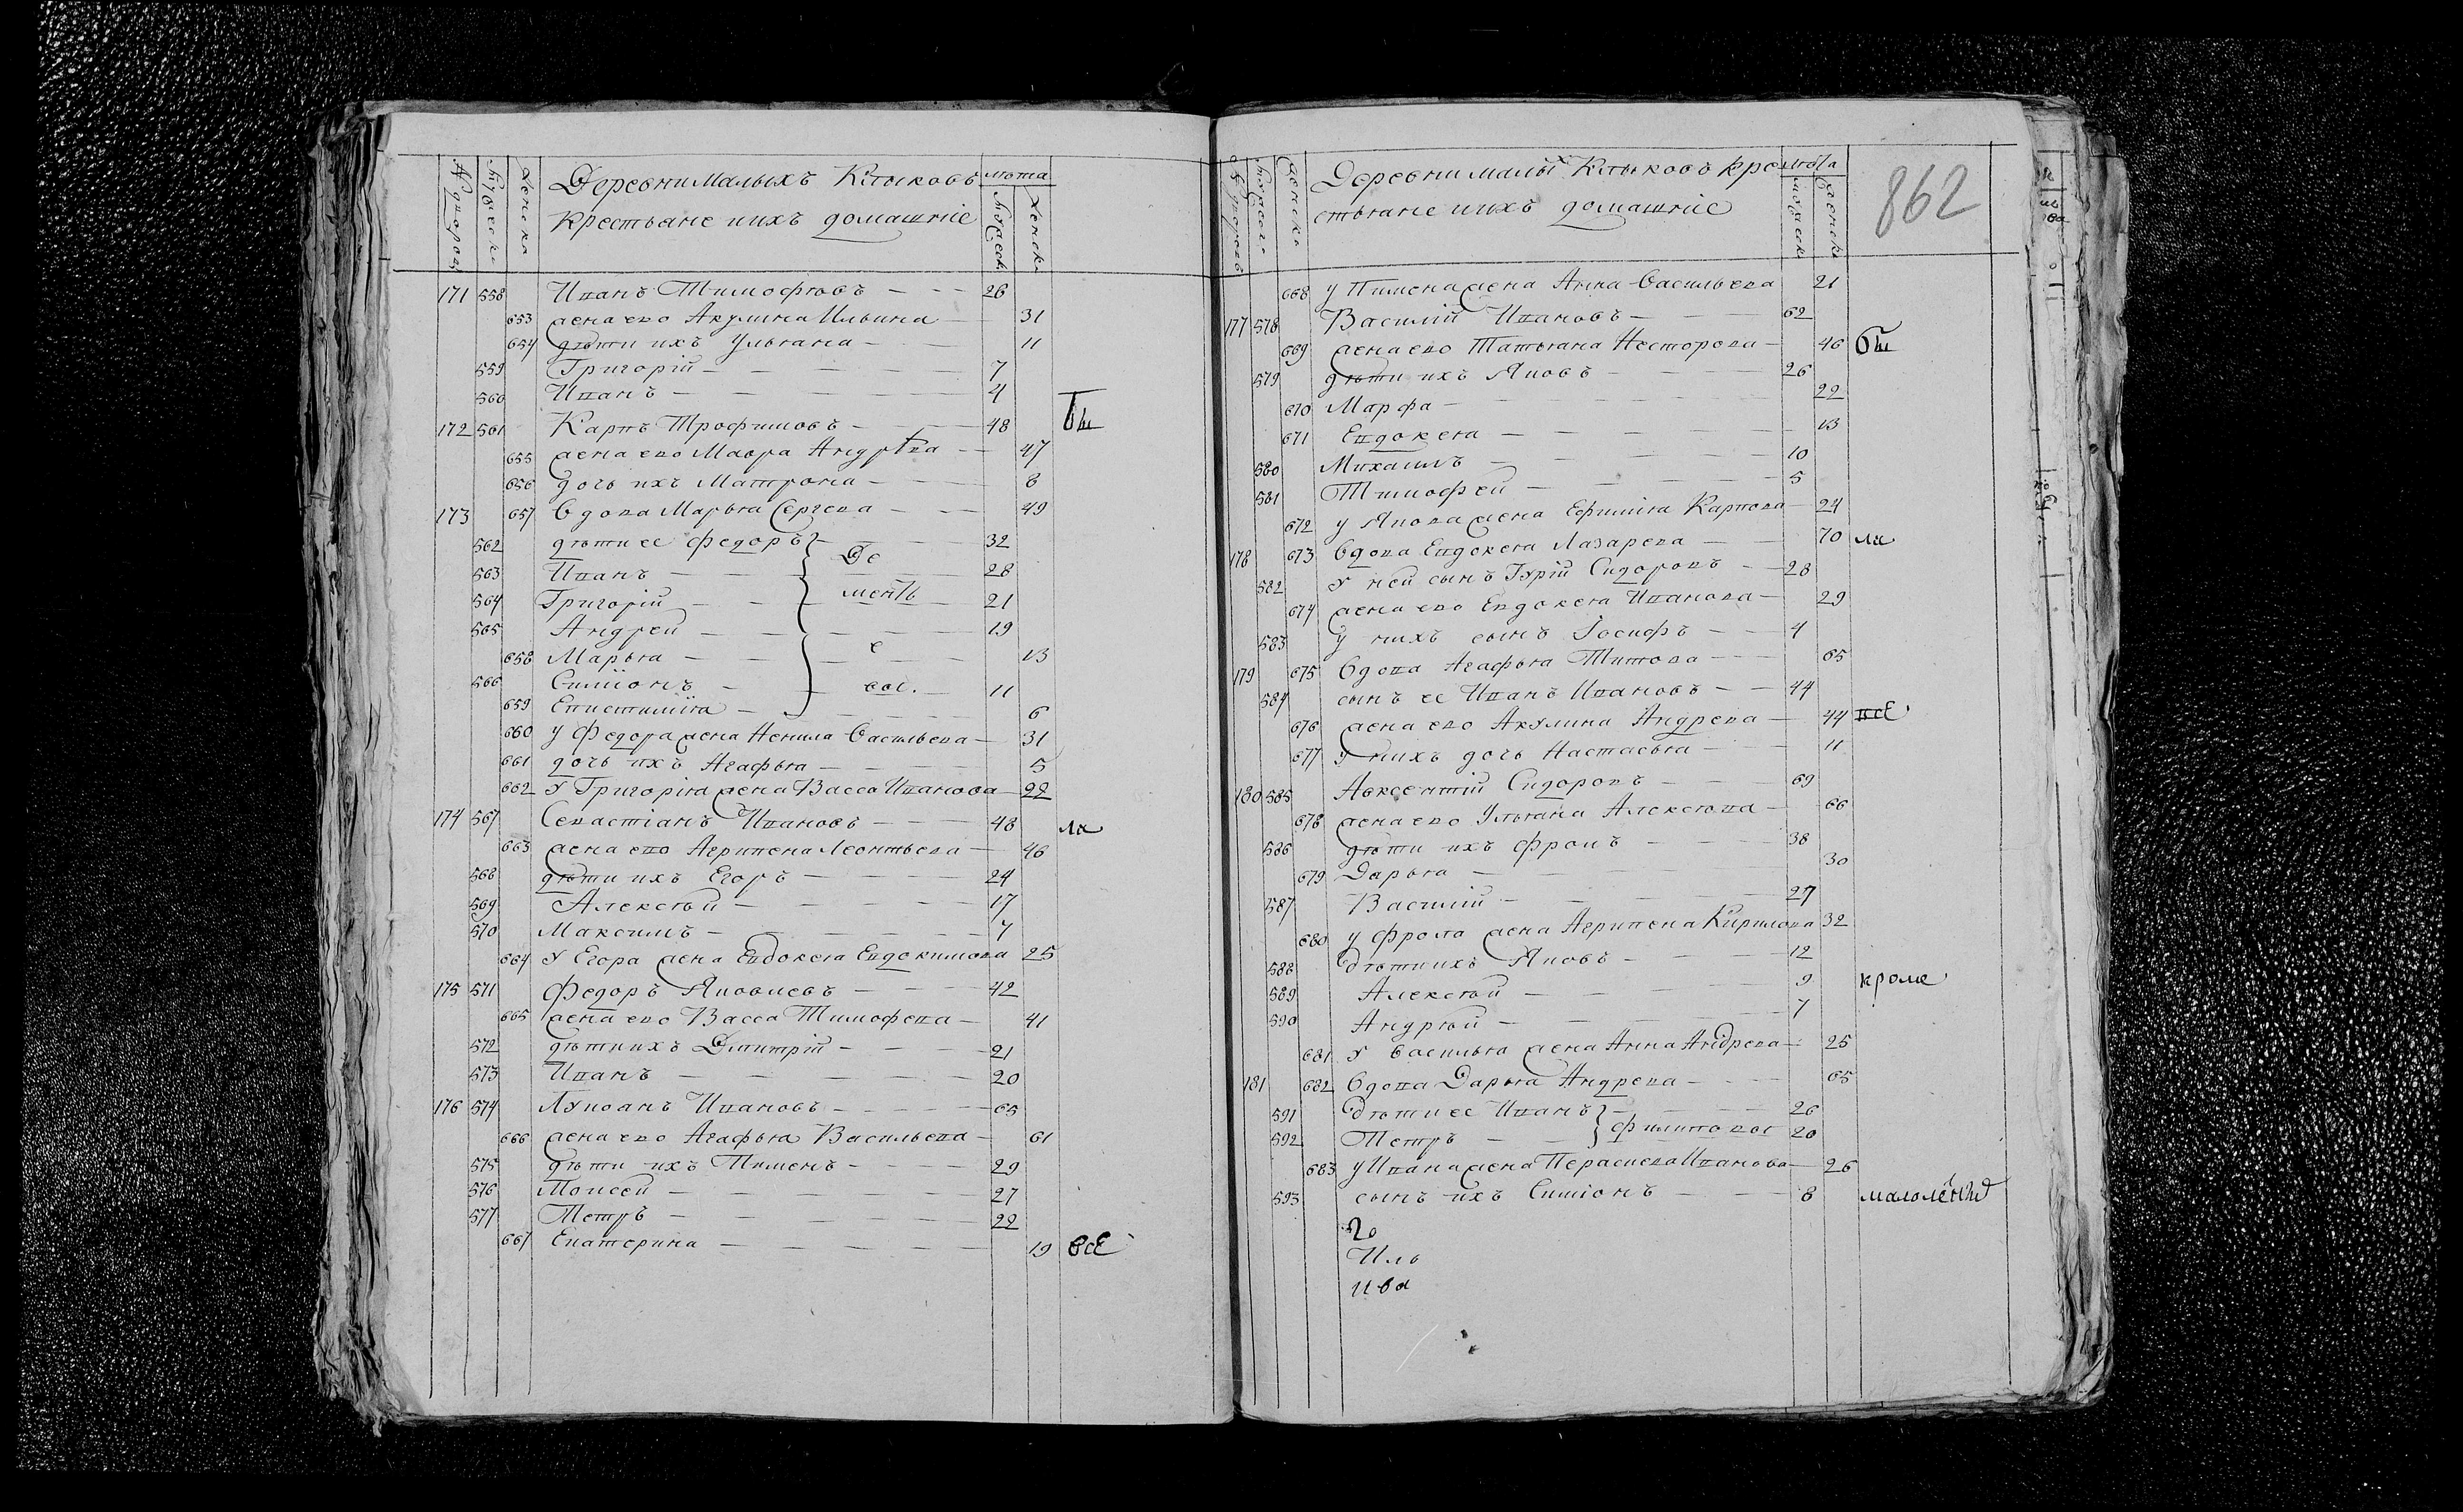 № дворовъ
Мужеска
Женска
Деревни Малыхъ Клыковъ
крестьяне и ихъ домашніе
лѣта
Мужеск
Женск
171 558 Иванъ Тимофѣевъ 26
653 жена ево Акулина Ильина 31
654 дѣти ихъ Ульяна 11
559 Григорій 7
560 Иванъ 4
172 561 Карпъ Трофимовъ 48 бы
655 жена ево Мавра Андрѣева 47
656 дочь ихъ Матрона 8
173 657 вдова Марья Сергева 49
562 дѣти ее Федоръ 32
563 Иванъ Де 28
564 Григорій менть 21
565 Андрей 19
658 Марья е 13
566 Симіонъ вы. 11
659 Епистимія 6
660 у Федора жена Ненила Васильева 31
661 дочь ихъ Агафья 5
662 У Григорія жена Васса Иванова 22
174 567 Севастіанъ Ивановъ 48 ли
663 жена ево Агрипена Леонтьева 46
568 дѣти ихъ Егоръ 24
569 Алексѣй 17
570 Максимъ 7
664 У Егора жена Евдокея Евдокимова 25
175 571 Федоръ Яковлевъ 42
665 жена ево Васса Тимофева 41
572 дѣти ихъ Дмитрій 21
573 Иванъ 20
176 574 Лукоанъ Ивановъ 65
666 жена ево Агафья Васильева 61
575 дѣти ихъ Пименъ 29
576 Моисей 27
577 Петръ 22
667 Екатерина 19 всѣ
№ дворовъ
Мужеска
Женска
Деревни малыхъ Клыковъ кре
стьяне и ихъ домашніе
лѣта
мужеск
женск
862
668 у Пимена жена Анна Васильева 21
177 578 Василій Ивановъ 62
669 жена ево Татьяна Несторова 46 бы
579 дѣти ихъ Яковъ 26
670 Марфа 22
671 Евдокея 13
580 Михаилъ 10
581 Тимофей 5
672 у Якова жена Ефимія Карпова 24
178 673 вдова Евдокея Лазарева 70 ли
582 У ней сынъ Гурій Сидоровъ 28
674 жена ево Евдокея Иванова 29
583 у нихъ сынъ Іосифъ 4
179 675 вдова Агафья Титова 65
584 сынъ ее Иванъ Ивановъ 44
676 жена ево Акулина Андрева 44 всѣ
677 У нихъ дочь Настасья 11
180 585 Авксентій Сидоровъ 69
678 жена ево Ульяна Алексѣева 66
586 дѣти ихъ Фролъ 38
679 Дарья 30
587 Василій 27
680 у Фрола жена Агрипена Кирилова 32
588 дѣти ихъ Яковъ 12
589 Алексѣй 9 кроме
590 Андрѣй 7
681 У Василья жена Анна Андрева 25
181 682 вдова Дарья Андрева 65
591 дѣти ее Иванъ 26
592 Петръ Филиповы 20
683 у Ивана жена Парасковья Иванова 26
593 сынъ ихъ Симіонъ 8 малолетн
Иль
ива